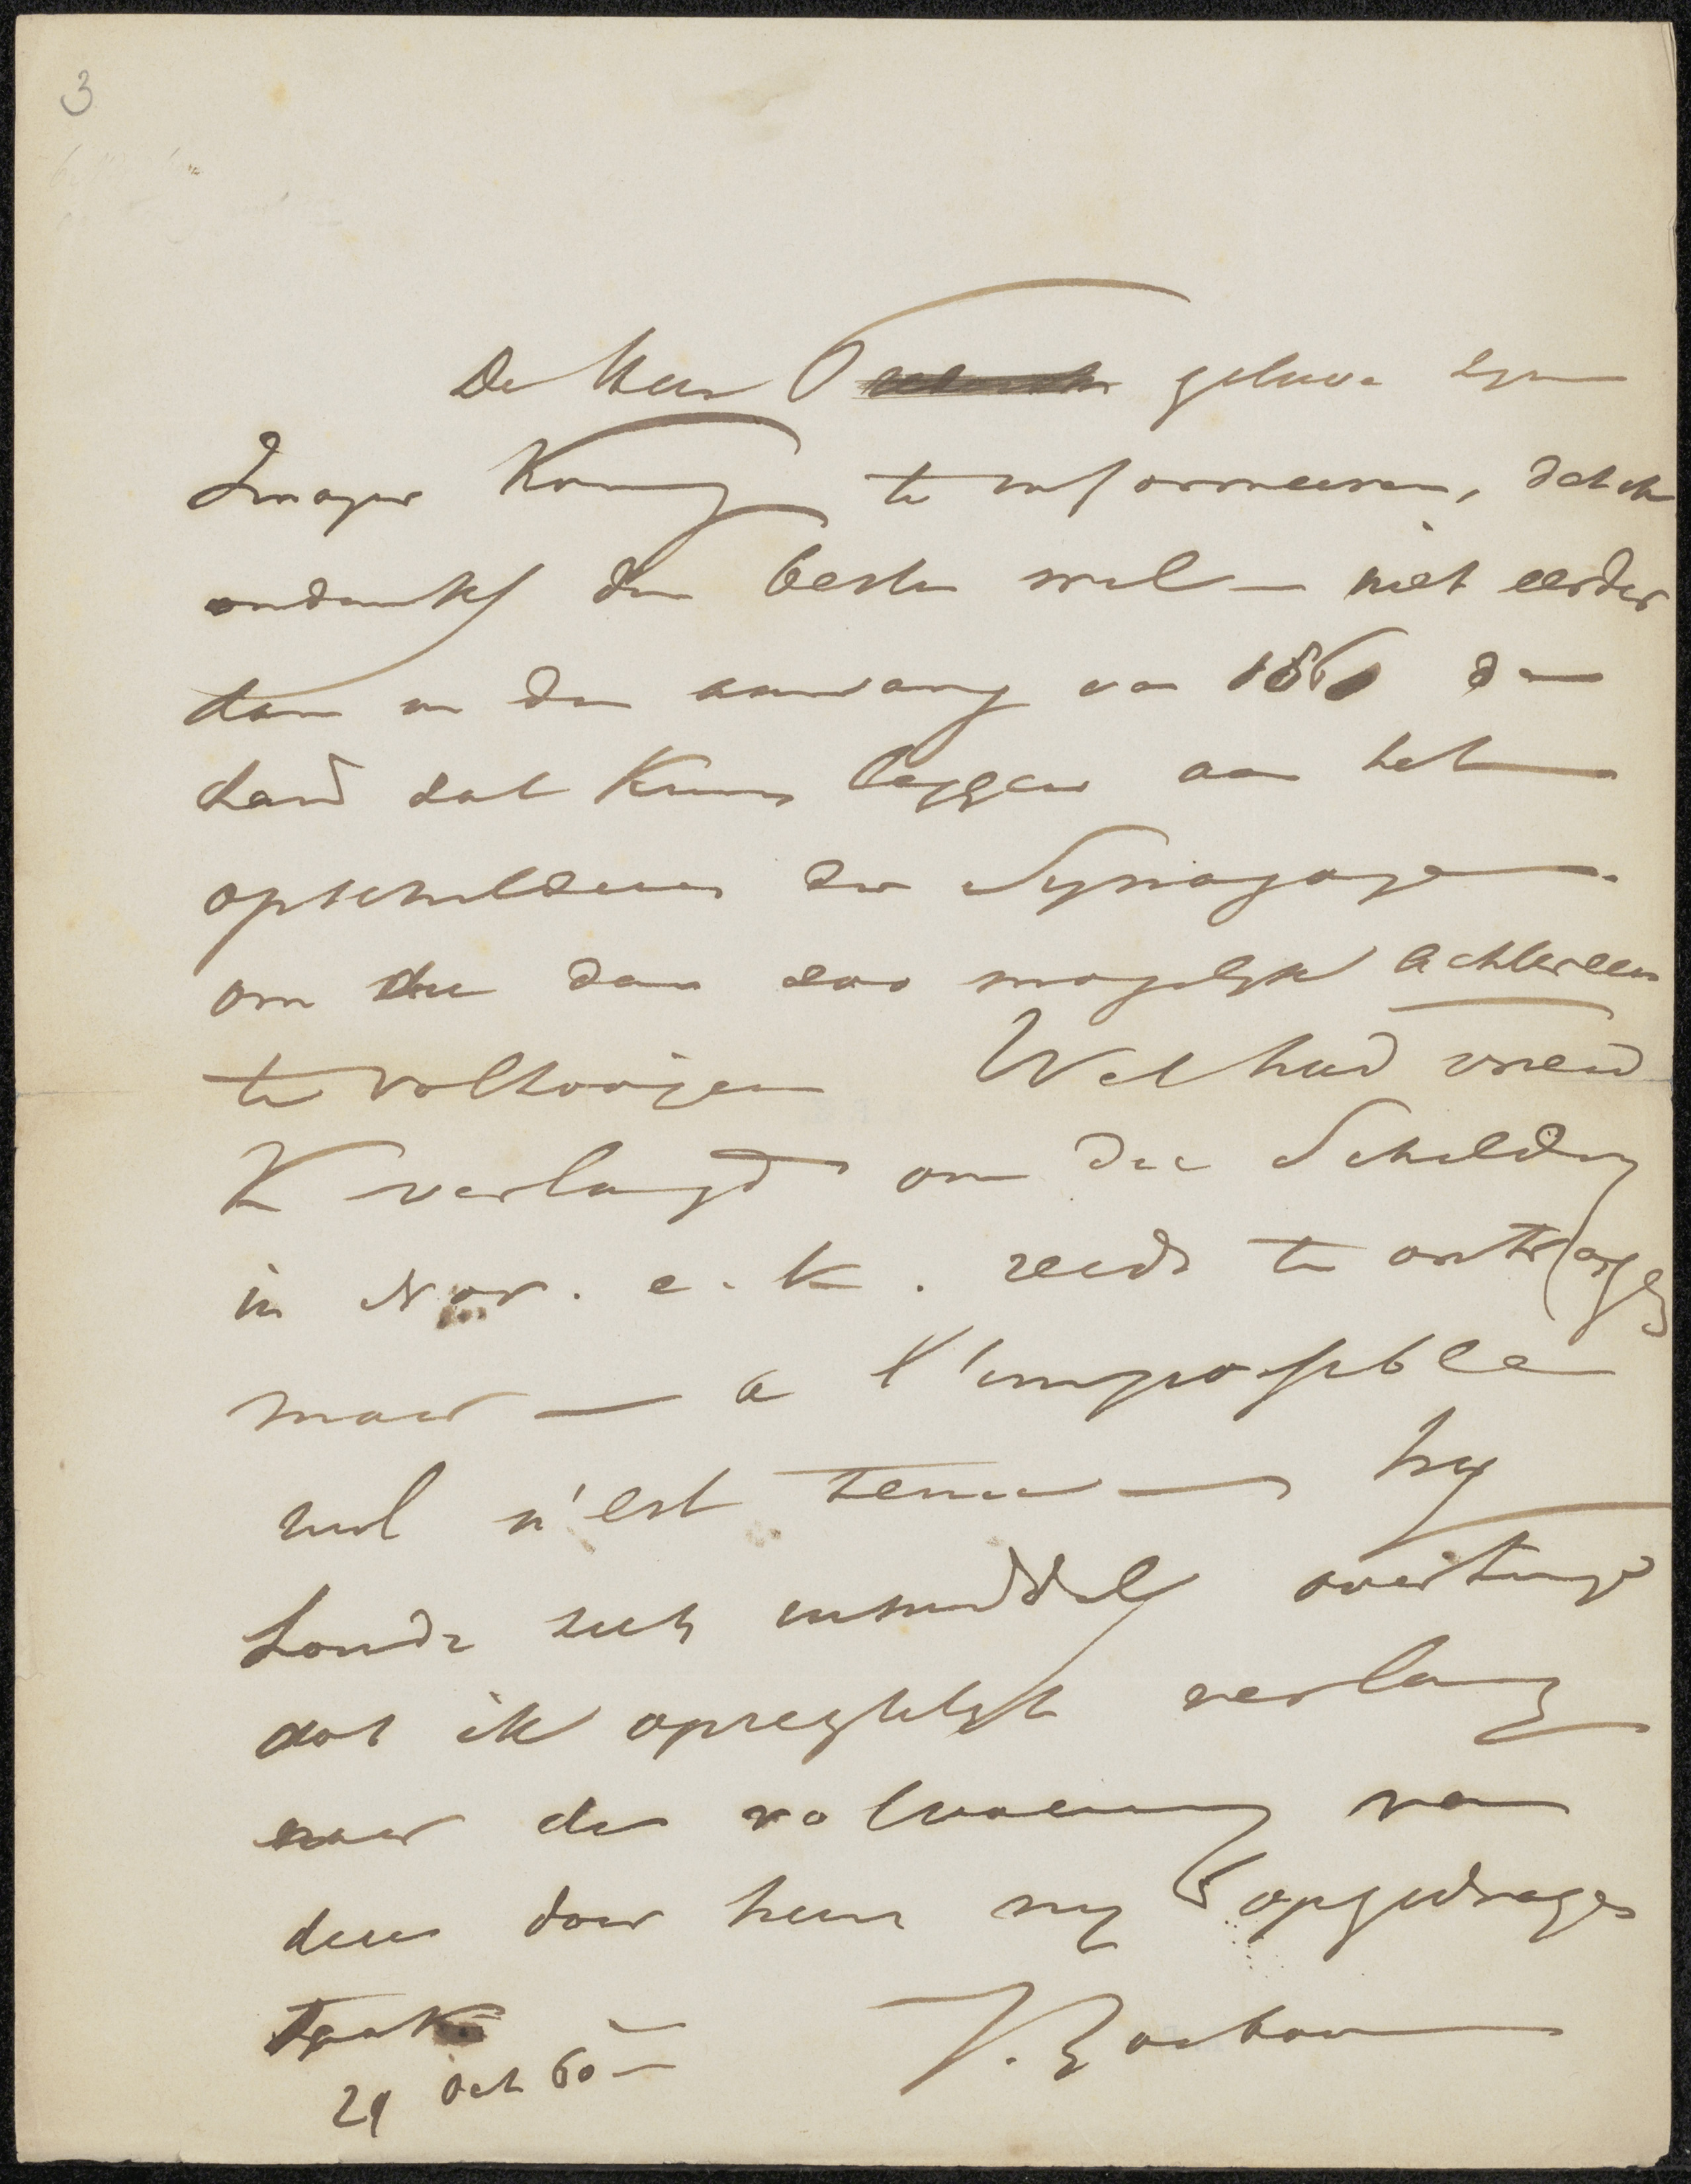 3
De Heer gelieve zyn
Zwager Koning te informeeren, dat ik
ondanks den besten wil – niet eerder
dan in den aanvang van 1861 de
hand zal kunnen leggen aan het
opschilderen der Synagoge
om die dan zoo mogelyk achtereen
te voltooijen Wel had vriend
K verlangd om die Schildery
in Nov. e. k. reeds te ontvangen
maar – a l'impossible
nul n'est tenu – hy
houde zich inmiddels overtuigd
dat ik opregtelyk verlang
naar de voltooiing van
deze door hem my opgedragen
taak
29 Oct 60 – J. Bosboom